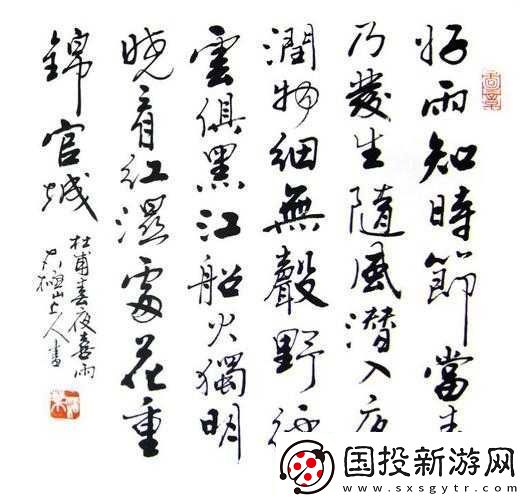 好雨知時節當春
乃發生隨風潛入夜
潤物細無聲野徑
雲俱黑江船火獨明
曉看紅濕處花重
錦官城
杜甫春夜喜雨
山上人書
国投新游网
www.sxsgytr.com